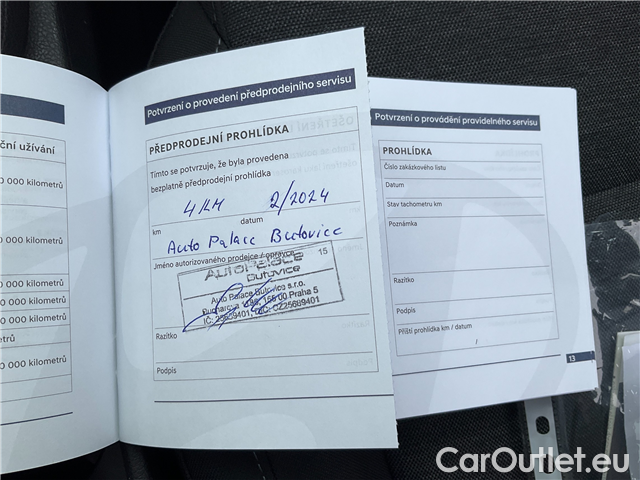 ční užívání
000 kilometrů
0 000 kilometrů
000 kilometrů
000 kilometrů
metrů
000 kilometrů
000 kilometrů
Potvrzení o provedení předprodejního servisu
PŘEDPRODEJNÍ PROHLÍDKA
Tímto se potvrzuje, že byla provedena
bezplatně předprodejní prohlídka
4 KM 2/2024
km datum
Auto Palace Butovice
Jméno autorizovaného prodejce / opravce
AUTOPALACE
Butovice
15
Auto Palace Butovice s.r.o.
155 00 Praha 5
Razítko
Podpis
Potvrzení o provádění pravidelného servisu
PROHLÍDKA
Číslo zakázkového listu
Datum
Stav tachometru km
Poznámka
Razítko
Podpis
Příští prohlídka km / datum
/
13
CarOutlet.eu